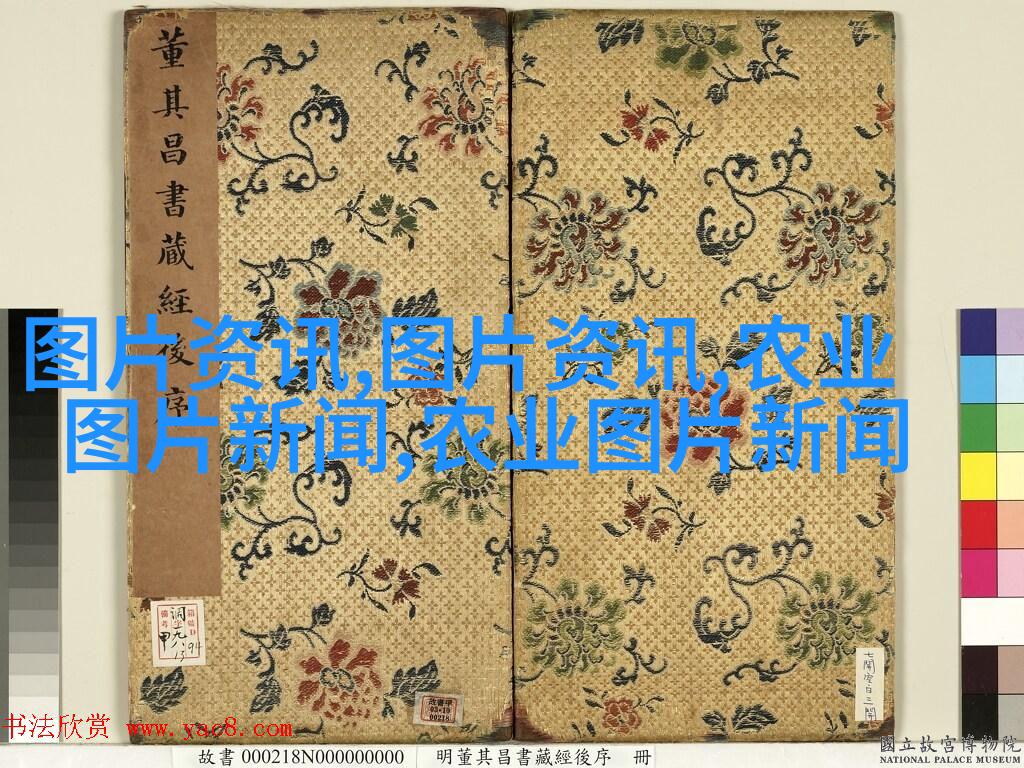 董其昌書藏經後序
图片资讯,图片资讯,农业
图片新闻,农业图片新闻
箱號D
備考
調字九八
13
甲
94
故書甲
03•10
00218
七開空白三開
书法欣赏 www.yac8.com
故書 000218N000000000
明董其昌書藏經後序 冊
國立故宮博物院
NATIONAL PALACE MUSEUM